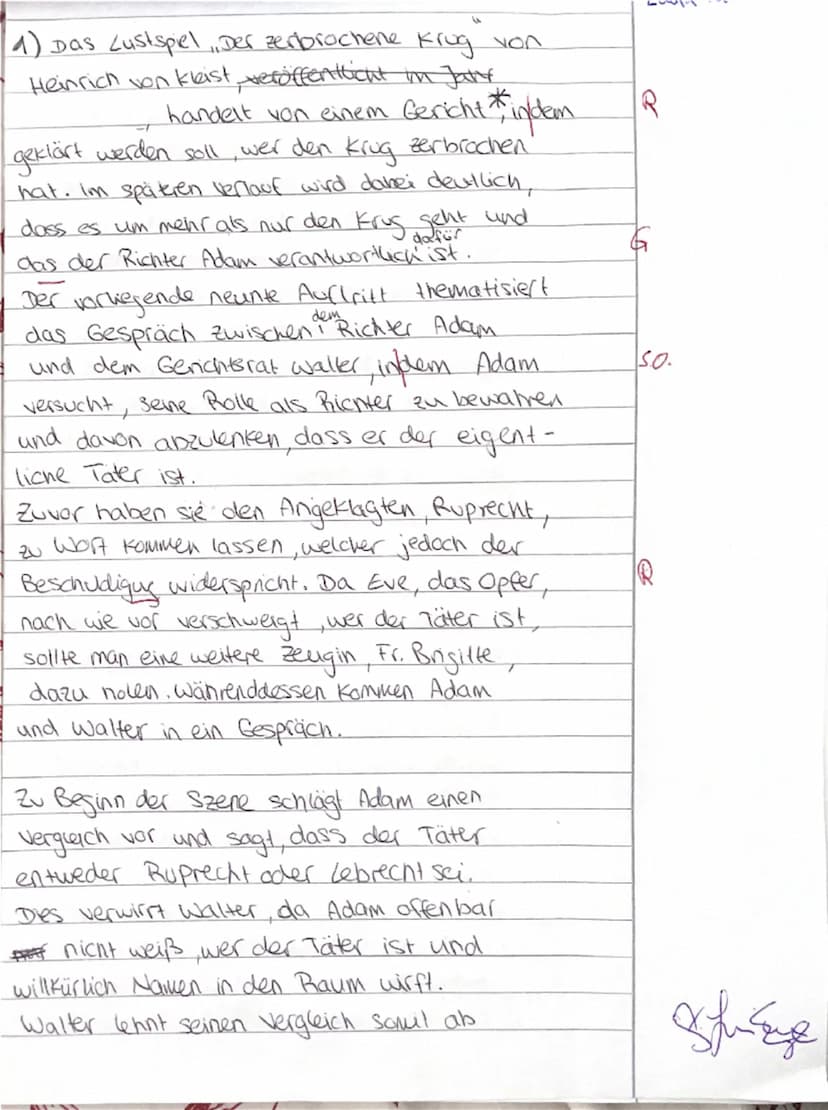 1) Das Lustspiel „Der zerbrochene Krug" von
Heinrich von Kleist, veröffentlicht im Jahr
, handelt von einem Gericht*, in dem R
geklärt werden soll, wer den Krug zerbrochen
hat. Im späteren Verlauf wird dabei deutlich,
dass es um mehr als nur den Krug geht und
das der Richter Adam verantwortlich dafür ist. G
Der vorliegende neunte Auftritt thematisiert
das Gespräch zwischen dem Richter Adam
und dem Gerichtsrat Walter, in dem Adam so.
versucht, seine Rolle als Richter zu bewahren
und davon abzulenken, dass er der eigent-
liche Täter ist.
Zuvor haben sie den Angeklagten, Ruprecht,
zu Wort kommen lassen, welcher jedoch der
Beschudigug widerspricht. Da Eve, das Opfer, R
nach wie vor verschweigt, wer der Täter ist,
sollte man eine weitere Zeugin, Fr. Brigitte,
dazu holen. Währenddessen kommen Adam
und Walter in ein Gespräch.
Zu Beginn der Szene schlägt Adam einen
Vergleich vor und sagt, dass der Täter
entweder Ruprecht oder Lebrecht sei.
Dies verwirrt Walter, da Adam offenbar
nicht weiß, wer der Täter ist und
willkürlich Namen in den Raum wirft.
Walter lehnt seinen Vergleich somit ab